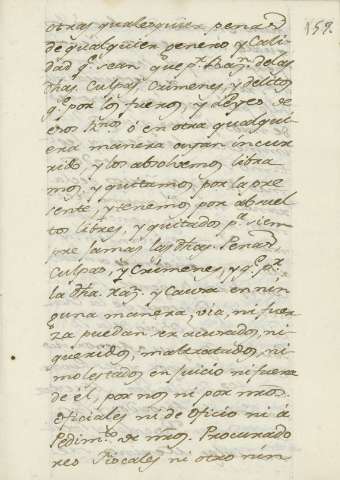 159.
otras qualesquier penas
de qualquier genero, y Cali
dad q.e sean que p.r Raz.n de las
dhas. Culpas, Crimenes, y delitos
q.e por los fueros, y Leyes de
esos R.nos ó en otra qualqui
era manera ayan incu
rrido, y los absolvemos, libra
mos, y quitamos por la pre
sente, y tenemos por absuel
tos libres, y quitados p.a siem
pre jamas las dhas. Penas
Culpas, y Crimenes, y q.e p.r
la dha. raz.n y Causa en nin
guna manera, via, ni fuer
za puedan ser acusados, ni
queridos, maltratados, ni
molestados en juicio ni fuera
de él, por nos ni por nros.
oficiales ni de oficio ni á
Pedim.to de nros. Procurado
res Fiscales ni otro nin